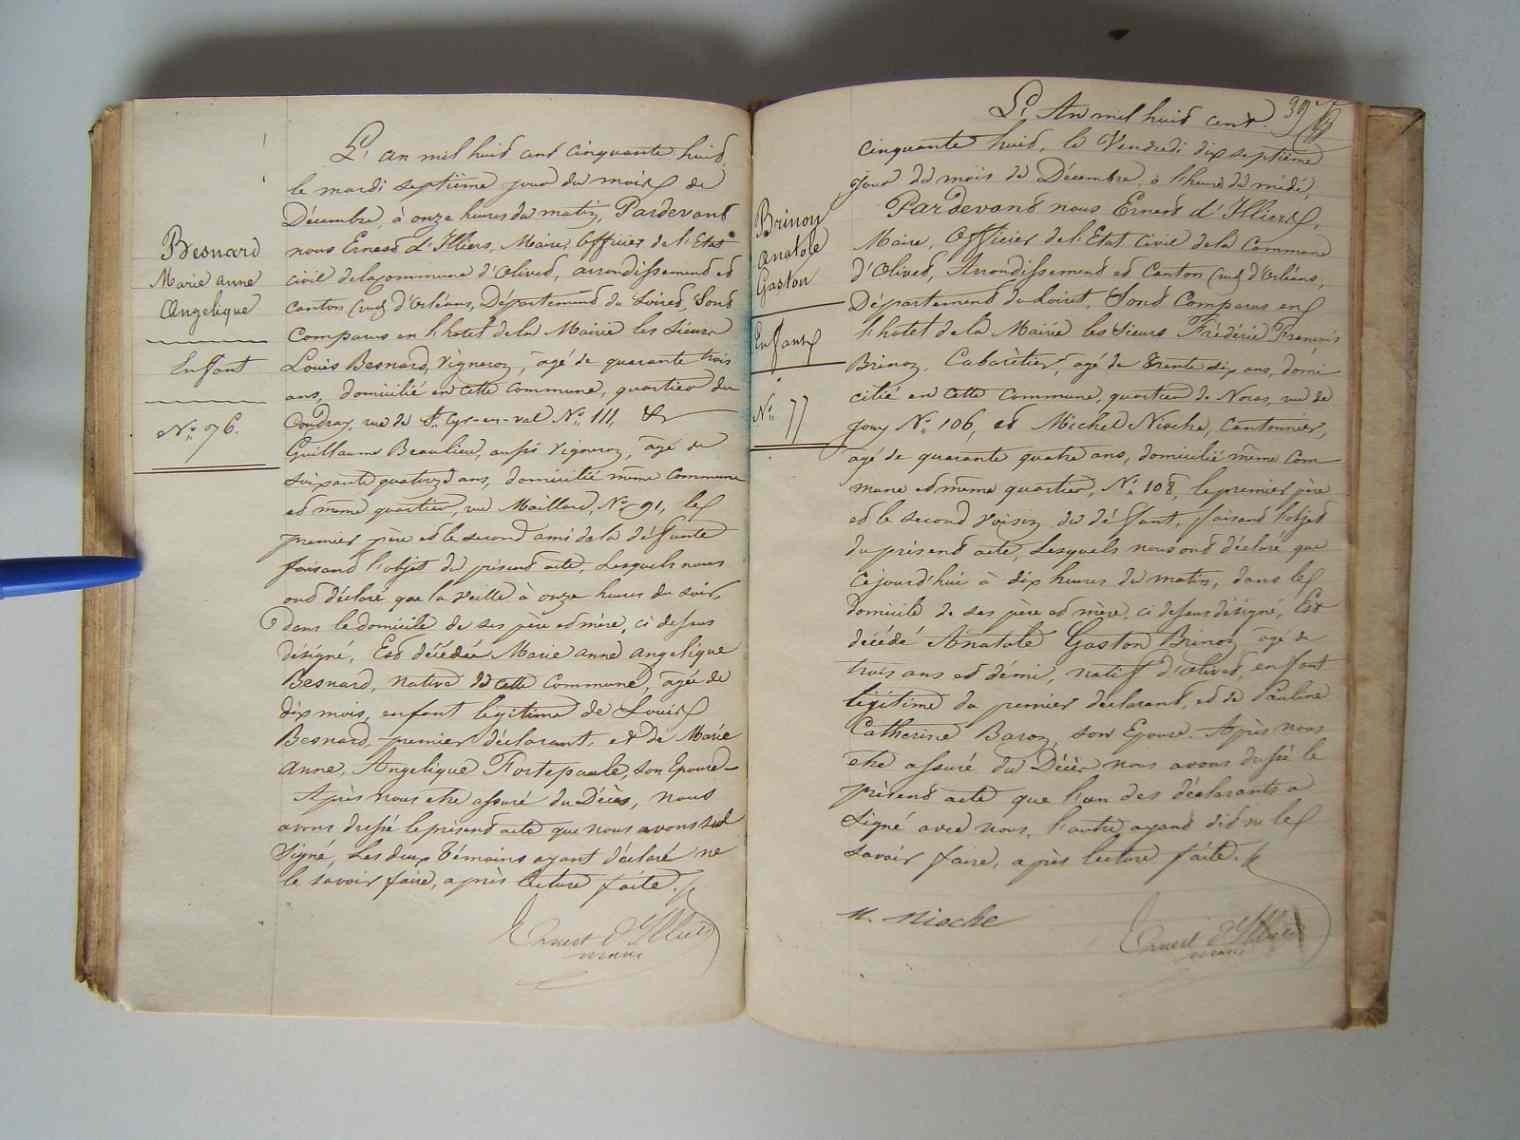 Besnard
Marie Anne
Angelique
Enfant
N° 76.
L'an mil huit cent cinquante huit,
le mardi septième jour du mois de
Décembre, à onze heures du matin, Pardevant
nous Ernest d'Illiers, Maire, Officier de l'Etat
civil de la commune d'Olivet, arrondissement et
canton (sud) d'Orléans, Département du Loiret, Sont
Comparus en l'hôtel de la Mairie les Sieurs
Louis Besnard, Vigneron, agé de quarante trois
ans, domicilié en cette commune, quartier du
Coudray, rue de St Cyr-en-val N° 111, &
Guillaume Beaulieu, aussi vigneron, agé de
soixante quatorze ans, domicilié même commune
et même quartier, rue Maillard, N° 91, les
premier père et le second ami de la défunte
faisant l'objet du présent acte, Lesquels nous
ont déclaré que la veille à onze heures du soir,
dans le domicile de ses père et mère, ci dessus
désigné, Est décédée Marie Anne Angelique
Besnard, native de cette Commune, agée de
dix mois, enfant légitime de Louis
Besnard, premier déclarant, et de Marie
Anne, Angelique Fortepaule, son Epouse
Après nous etre assuré du Décès, nous
avons dressé le présent acte que nous avons seul
Signé, Les deux témoins ayant déclaré ne
le savoir faire, après lecture faite.
Ernest d'Illiers
maire
Brinon
Anatole
Gaston
Enfant
N° 77
L'An mil huit cent
cinquante huit, le Vendredi dix septième
jour du mois de Décembre, à l'heure de midi,
Pardevant nous Ernest d'Illiers,
Maire, Officier de l'Etat Civil de la Commune
d'Olivet, Arrondissement et Canton (sud) d'Orléans,
Département du Loiret, Sont Comparus en
l'hôtel de la Mairie les Sieurs Frédéric François
Brinon, Cabaretier, agé de trente six ans, domi
cilié en cette Commune, quartier de Noras, rue de
Jouy N° 106, et Michel Nioche, cantonnier,
agé de quarante quatre ans, domicilié même com
mune et même quartier, N° 108, le premier père
et le second voisin du défunt, faisant l'objet
du présent acte, Lesquels nous ont déclaré que
cejourd'hui à dix heures du matin, dans le
domicile de ses père et mère, ci dessus désigné, Est
décédé Anatole Gaston Brinon, agé de
trois ans et demi, natif d'Olivet, enfant
légitime du premier déclarant, et de Pauline
Catherine Baron, son Epouse. Après nous
etre assuré du Décès nous avons dressé le
présent acte que l'un des déclarants a
Signé avec nous, l'autre ayant dit ne le
savoir faire, après lecture faite.
M. Nioche
Ernest d'Illiers
maire